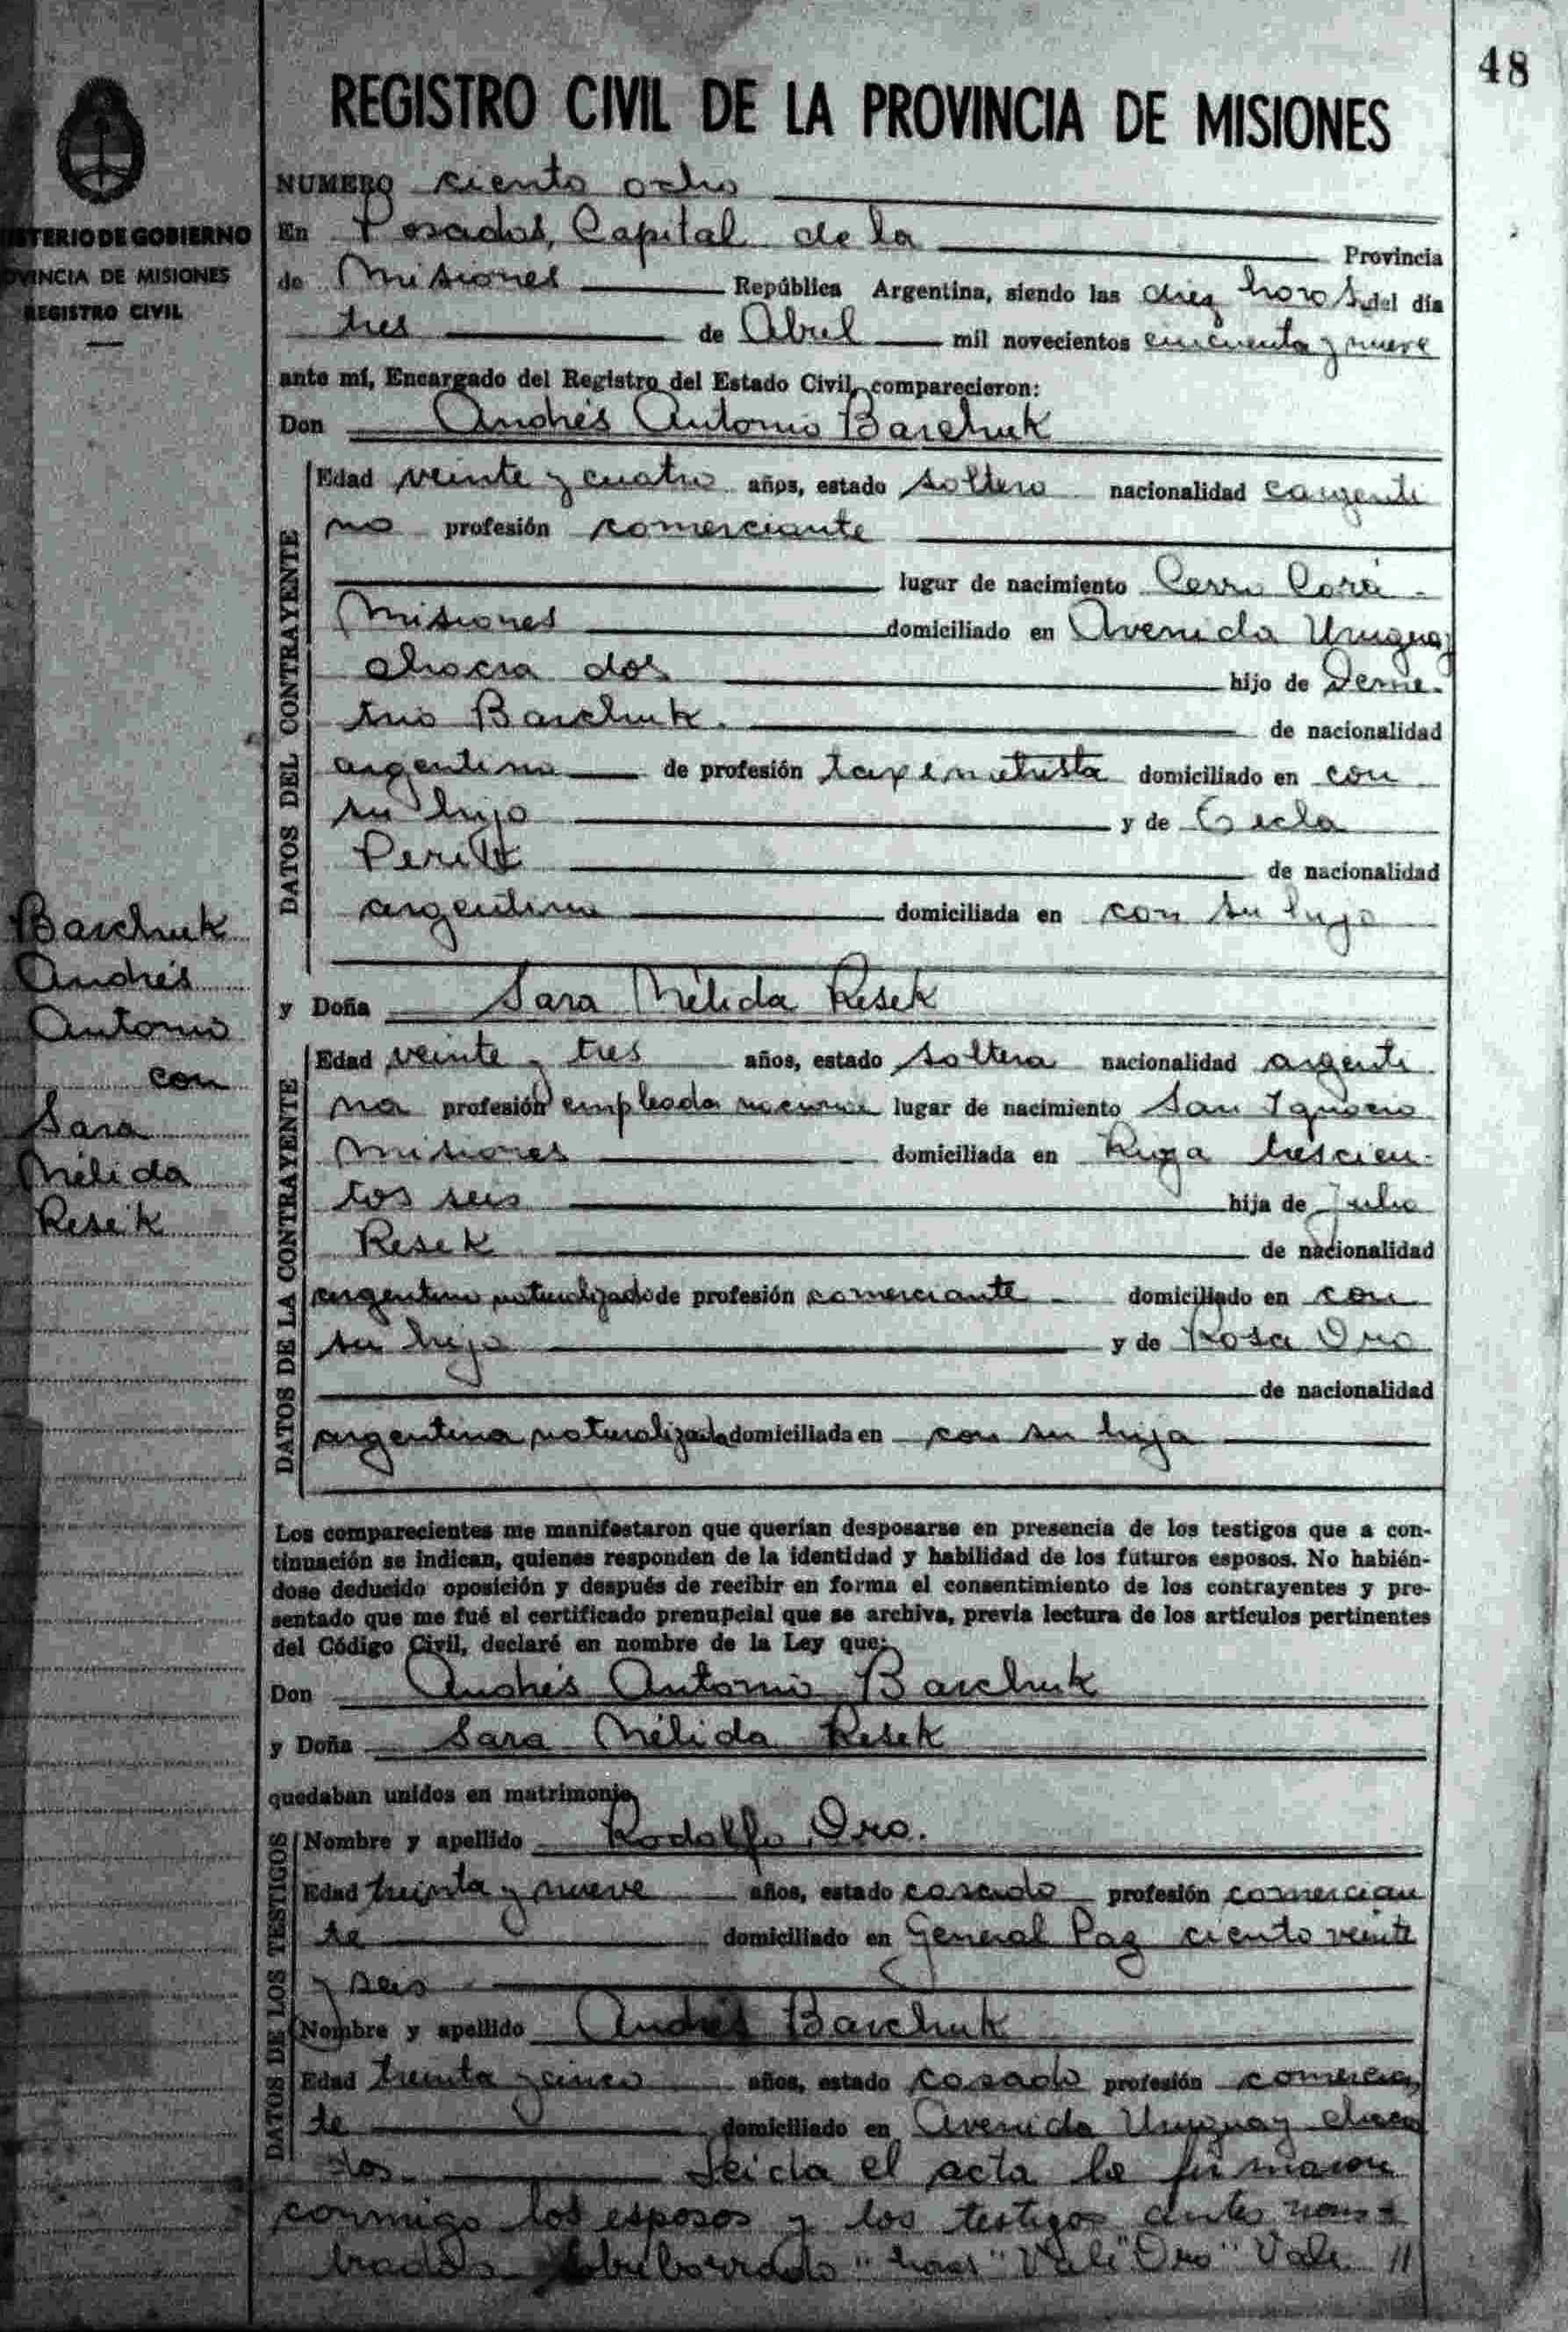 48
REGISTRO CIVIL DE LA PROVINCIA DE MISIONES
NUMERO ciento ocho
TERIO DE GOBIERNO
VINCIA DE MISIONES
REGISTRO CIVIL
En Posadas, Capital de la Provincia
de Misiones República Argentina, siendo las diez horas del día
tres de Abril mil novecientos cincuenta y nueve
ante mí, Encargado del Registro del Estado Civil, comparecieron:
Don Andrés Antonio Barchuk
DATOS DEL CONTRAYENTE
Edad veinte y cuatro años, estado soltero nacionalidad argenti
no profesión comerciante
lugar de nacimiento Cerro Corá
Misiones domiciliado en Avenida Uruguay
chacra dos hijo de Deme-
trio Barchuk. de nacionalidad
argentino de profesión taximetrista domiciliado en con
su hijo y de Tecla
de nacionalidad
argentina domiciliada en con su hijo
Barchuk
Andrés
Antonio
con
Sara
Mélida
Resek
y Doña Sara Mélida Resek
DATOS DE LA CONTRAYENTE
Edad veinte y tres años, estado soltera nacionalidad argenti
na profesión empleada lugar de nacimiento San Ignacio
Misiones domiciliada en trescien-
tos seis hija de Julio
Resek de nacionalidad
argentino naturalizado de profesión comerciante domiciliado en con
su hija y de Rosa Oro
de nacionalidad
argentina naturalizada domiciliada en con su hija
Los comparecientes me manifestaron que querían desposarse en presencia de los testigos que a con-
tinuación se indican, quienes responden de la identidad y habilidad de los futuros esposos. No habién-
dose deducido oposición y después de recibir en forma el consentimiento de los contrayentes y pre-
sentado que me fué el certificado prenupcial que se archiva, previa lectura de los artículos pertinentes
del Código Civil, declaré en nombre de la Ley que:
Don Andrés Antonio Barchuk
y Doña Sara Mélida Resek
quedaban unidos en matrimonio,
DATOS DE LOS TESTIGOS
Nombre y apellido Rodolfo Oro.
Edad treinta y nueve años, estado casado profesión comercian
te domiciliado en General Paz ciento veinte
y seis
Nombre y apellido Andrés Barchuk
Edad treinta y cinco años, estado casado profesión comercian
te domiciliado en Avenida Uruguay chacra
dos. Leida el acta la firmaron
conmigo los esposos y los testigos antes nom-
brados. Sobreborrado "horas" Vale "Oro" Vale //